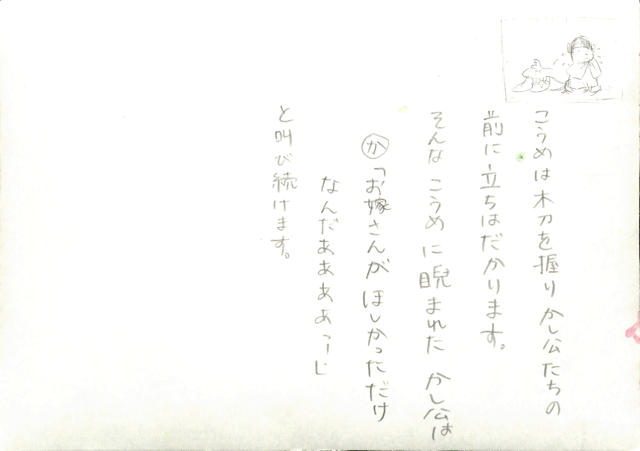 こうめは木刀を握りかし公たちの
前に立ちはだかります。
そんなこうめに睨まれたかし公は
か「お嫁さんがほしかっただけ
なんだああああっー」
と叫び続けます。